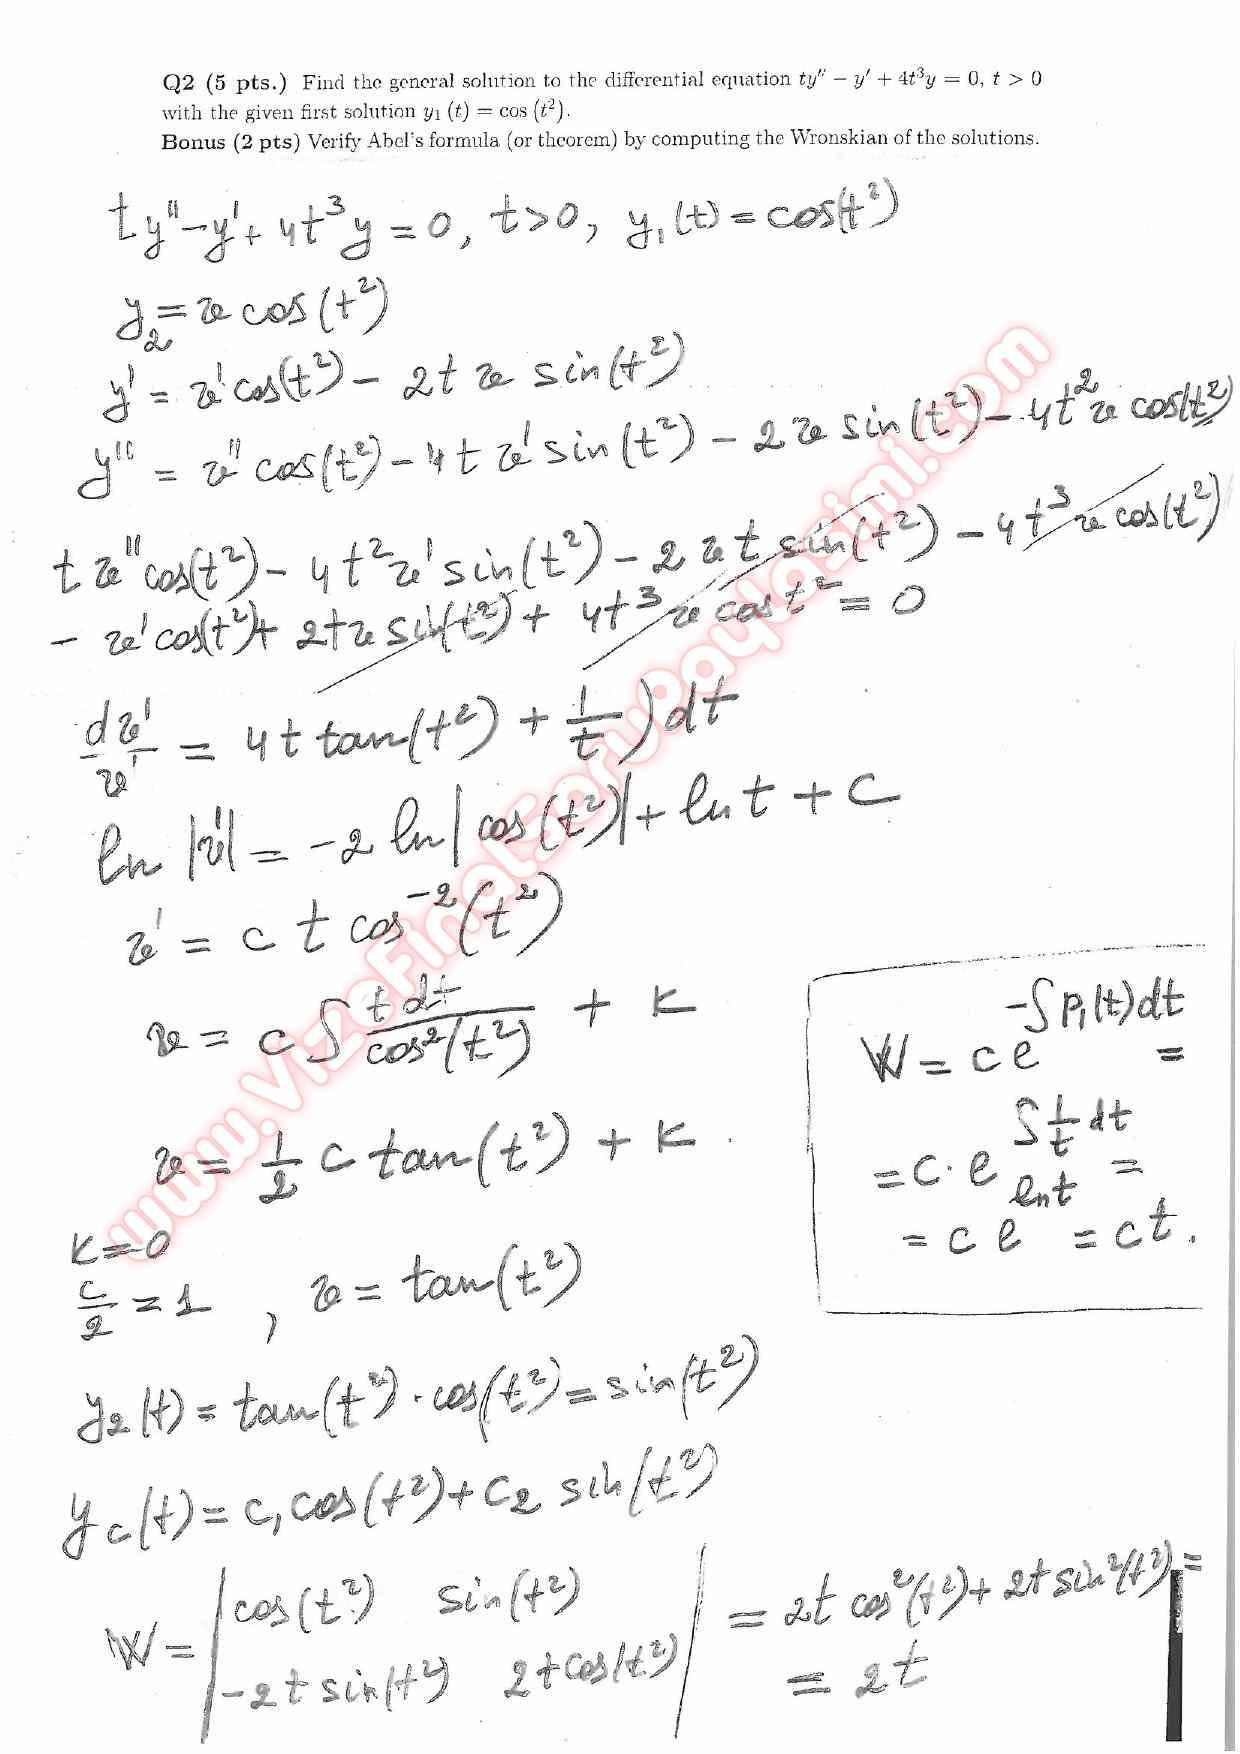 Q2 (5 pts.) Find the general solution to the differential equation ty″ − y′ + 4t³y = 0, t > 0
with the given first solution y₁ (t) = cos (t²).
Bonus (2 pts) Verify Abel's formula (or theorem) by computing the Wronskian of the solutions.
ty″ − y′ + 4t³y = 0, t > 0, y₁(t) = cos(t²)
y₂ = v cos(t²)
y′ = v′cos(t²) − 2t v sin(t²)
y″ = v″ cos(t²) − 4t v′ sin(t²) − 2v sin(t²) − 4t² v cos(t²)
t v″cos(t²) − 4t²v′sin(t²) − 2vt sin(t²) − 4t³v cos(t²)
− v′cos(t²) + 2tv sin(t²) + 4t³v cos t² = 0
dv′/v′ = 4t tan(t²) + 1/t)dt
ln |v′| = −2 ln|cos(t²)| + ln t + C
v′ = c t cos⁻²(t²)
v = c ∫ t dt/cos²(t²) + K
v = 1/2 c tan(t²) + K.
K=0
c/2 = 1, v = tan(t²)
y₂(t) = tan(t²) · cos(t²) = sin(t²)
y_c(t) = c₁cos(t²) + c₂ sin(t²)
W = | cos(t²) sin(t²) | = 2t cos²(t²) + 2t sin²(t²) =
| −2t sin(t²) 2t cos(t²) | = 2t
W = c e^(−∫p₁(t)dt) =
= c · e^(∫1/t dt) =
= c e^(ln t) = ct.
www.VizeFinalSoruPaylasimi.com